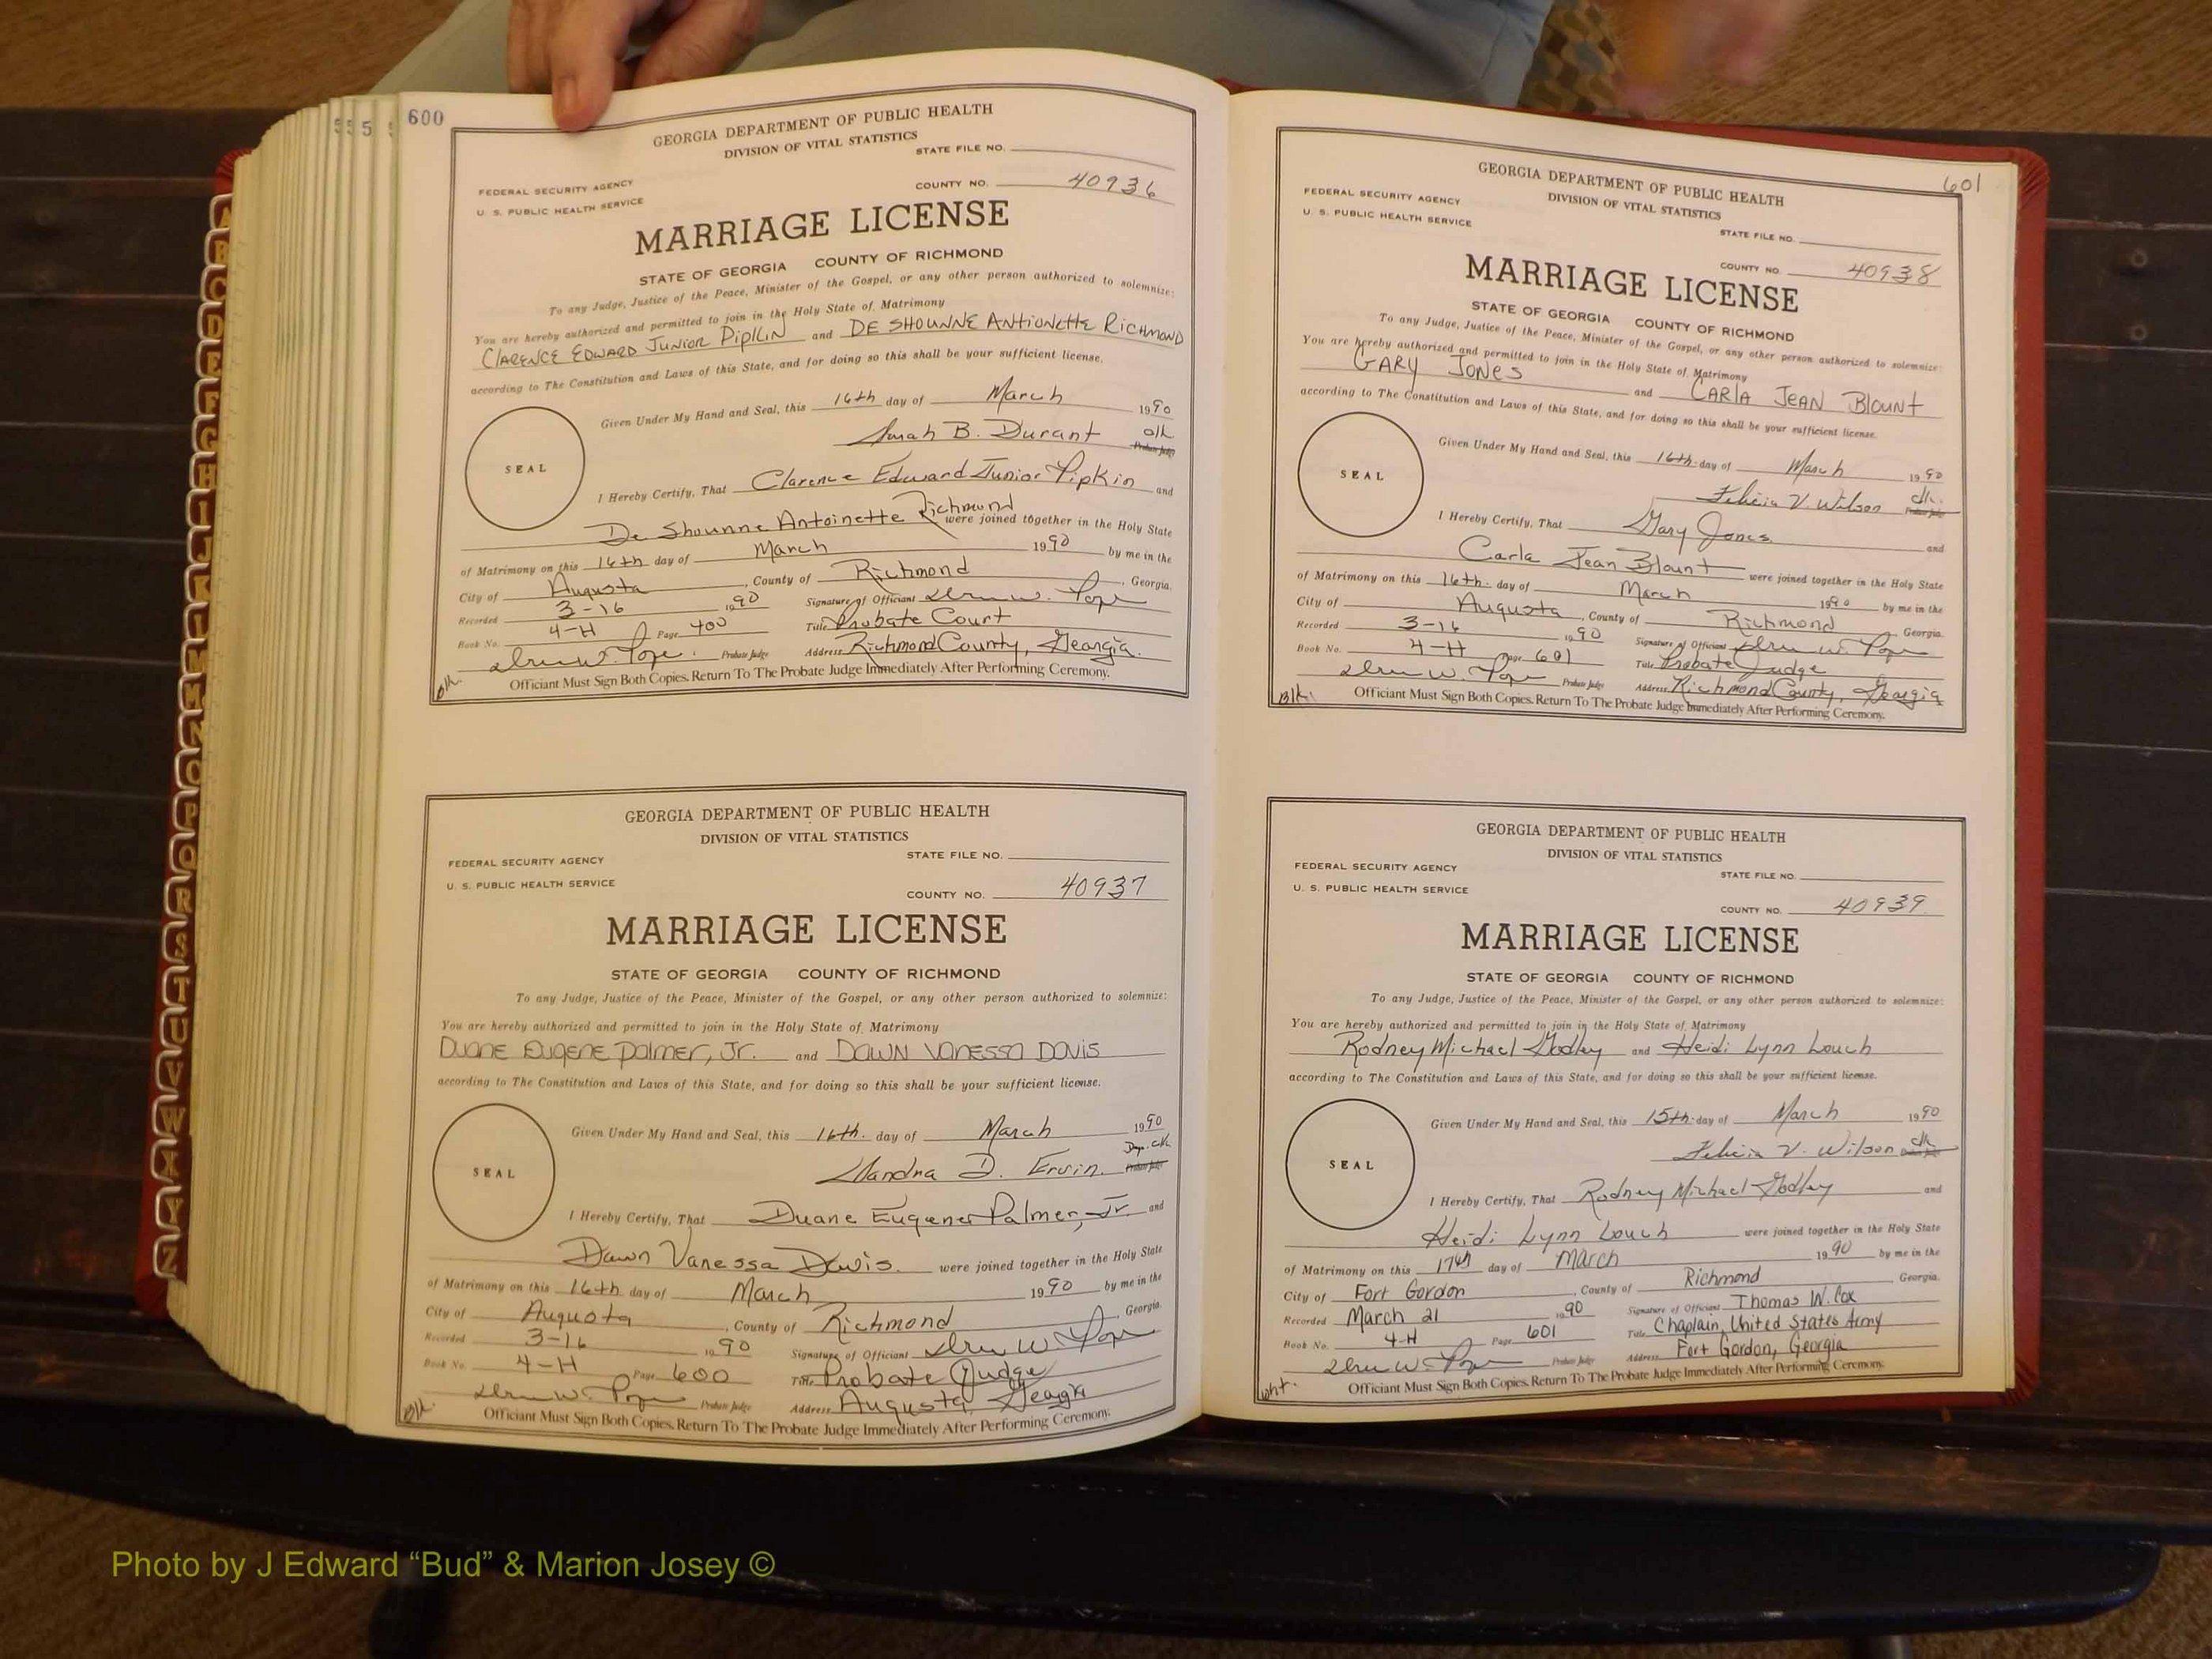 600
GEORGIA DEPARTMENT OF PUBLIC HEALTH
DIVISION OF VITAL STATISTICS
STATE FILE NO.
FEDERAL SECURITY AGENCY
COUNTY NO. 40936
U. S. PUBLIC HEALTH SERVICE
MARRIAGE LICENSE
STATE OF GEORGIA COUNTY OF RICHMOND
To any Judge, Justice of the Peace, Minister of the Gospel, or any other person authorized to solemnize:
You are hereby authorized and permitted to join in the Holy State of Matrimony
CLARENCE EDWARD JUNIOR PIPKIN and DE SHOUNNE ANTIONETTE RICHMOND
according to The Constitution and Laws of this State, and for doing so this shall be your sufficient license.
Given Under My Hand and Seal, this 16th day of March 1990
Sarah B. Durant clk Probate Judge
SEAL
I Hereby Certify, That Clarence Edward Junior Pipkin and
De Shounne Antoinette Richmond were joined together in the Holy State
of Matrimony on this 16th day of March 1990 by me in the
City of Augusta, County of Richmond, Georgia.
Recorded 3-16 1990 Signature of Officiant W. Pope
Book No. 4-H Page 400 Title Probate Court
W. Pope Probate Judge Address Richmond County, Georgia.
Officiant Must Sign Both Copies. Return To The Probate Judge Immediately After Performing Ceremony.
GEORGIA DEPARTMENT OF PUBLIC HEALTH
DIVISION OF VITAL STATISTICS
STATE FILE NO.
FEDERAL SECURITY AGENCY
U. S. PUBLIC HEALTH SERVICE
COUNTY NO. 40937
MARRIAGE LICENSE
STATE OF GEORGIA COUNTY OF RICHMOND
To any Judge, Justice of the Peace, Minister of the Gospel, or any other person authorized to solemnize:
You are hereby authorized and permitted to join in the Holy State of Matrimony
DUANE EUGENE PALMER, JR. and DAWN VANESSA DAVIS
according to The Constitution and Laws of this State, and for doing so this shall be your sufficient license.
Given Under My Hand and Seal, this 16th. day of March 1990
D. Ervin Dep. Clk. Probate Judge
SEAL
I Hereby Certify, That Duane Eugene Palmer, Jr. and
Dawn Vanessa Davis. were joined together in the Holy State
of Matrimony on this 16th day of March 1990 by me in the
City of Augusta, County of Richmond, Georgia.
Recorded 3-16 1990 Signature of Officiant W. Pope
Book No. 4-H Page 600 Title Probate Judge
W. Pope Probate Judge Address Augusta, Georgia
Officiant Must Sign Both Copies. Return To The Probate Judge Immediately After Performing Ceremony.
601
GEORGIA DEPARTMENT OF PUBLIC HEALTH
DIVISION OF VITAL STATISTICS
FEDERAL SECURITY AGENCY
U. S. PUBLIC HEALTH SERVICE
STATE FILE NO.
COUNTY NO. 40938
MARRIAGE LICENSE
STATE OF GEORGIA COUNTY OF RICHMOND
To any Judge, Justice of the Peace, Minister of the Gospel, or any other person authorized to solemnize:
You are hereby authorized and permitted to join in the Holy State of Matrimony
GARY JONES and CARLA JEAN BLOUNT
according to The Constitution and Laws of this State, and for doing so this shall be your sufficient license.
Given Under My Hand and Seal, this 16th. day of March 1990
Felicia V. Wilson clk. Probate Judge
SEAL
I Hereby Certify, That Gary Jones and
Carla Jean Blount were joined together in the Holy State
of Matrimony on this 16th. day of March 1990 by me in the
City of Augusta, County of Richmond Georgia.
Recorded 3-16 1990 Signature of Officiant W. Pope
Book No. 4-H Page 601 Title Probate Judge
W. Pope Probate Judge Address Richmond County, Georgia
Officiant Must Sign Both Copies. Return To The Probate Judge Immediately After Performing Ceremony.
GEORGIA DEPARTMENT OF PUBLIC HEALTH
DIVISION OF VITAL STATISTICS
FEDERAL SECURITY AGENCY
STATE FILE NO.
U. S. PUBLIC HEALTH SERVICE
COUNTY NO. 40939
MARRIAGE LICENSE
STATE OF GEORGIA COUNTY OF RICHMOND
To any Judge, Justice of the Peace, Minister of the Gospel, or any other person authorized to solemnize:
You are hereby authorized and permitted to join in the Holy State of Matrimony
Rodney Michael Godley and Heidi Lynn Louch
according to The Constitution and Laws of this State, and for doing so this shall be your sufficient license.
Given Under My Hand and Seal, this 15th. day of March 1990
Felicia V. Wilson clk Probate Judge
SEAL
I Hereby Certify, That Rodney Michael Godley and
Heidi Lynn Louch were joined together in the Holy State
of Matrimony on this 17th day of March 1990 by me in the
City of Fort Gordon, County of Richmond Georgia.
Recorded March 21 1990 Signature of Officiant Thomas W. Cox
Book No. 4-H Page 601 Title Chaplain, United States Army
W. Pope Probate Judge Address Fort Gordon, Georgia
Officiant Must Sign Both Copies. Return To The Probate Judge Immediately After Performing Ceremony.
A
B
C
D
E
F
G
H
I
J
K
L
M
Mc
N
O
P
Q
R
S
T
U
V
W
X
Y
Z
Photo by J Edward “Bud” & Marion Josey ©